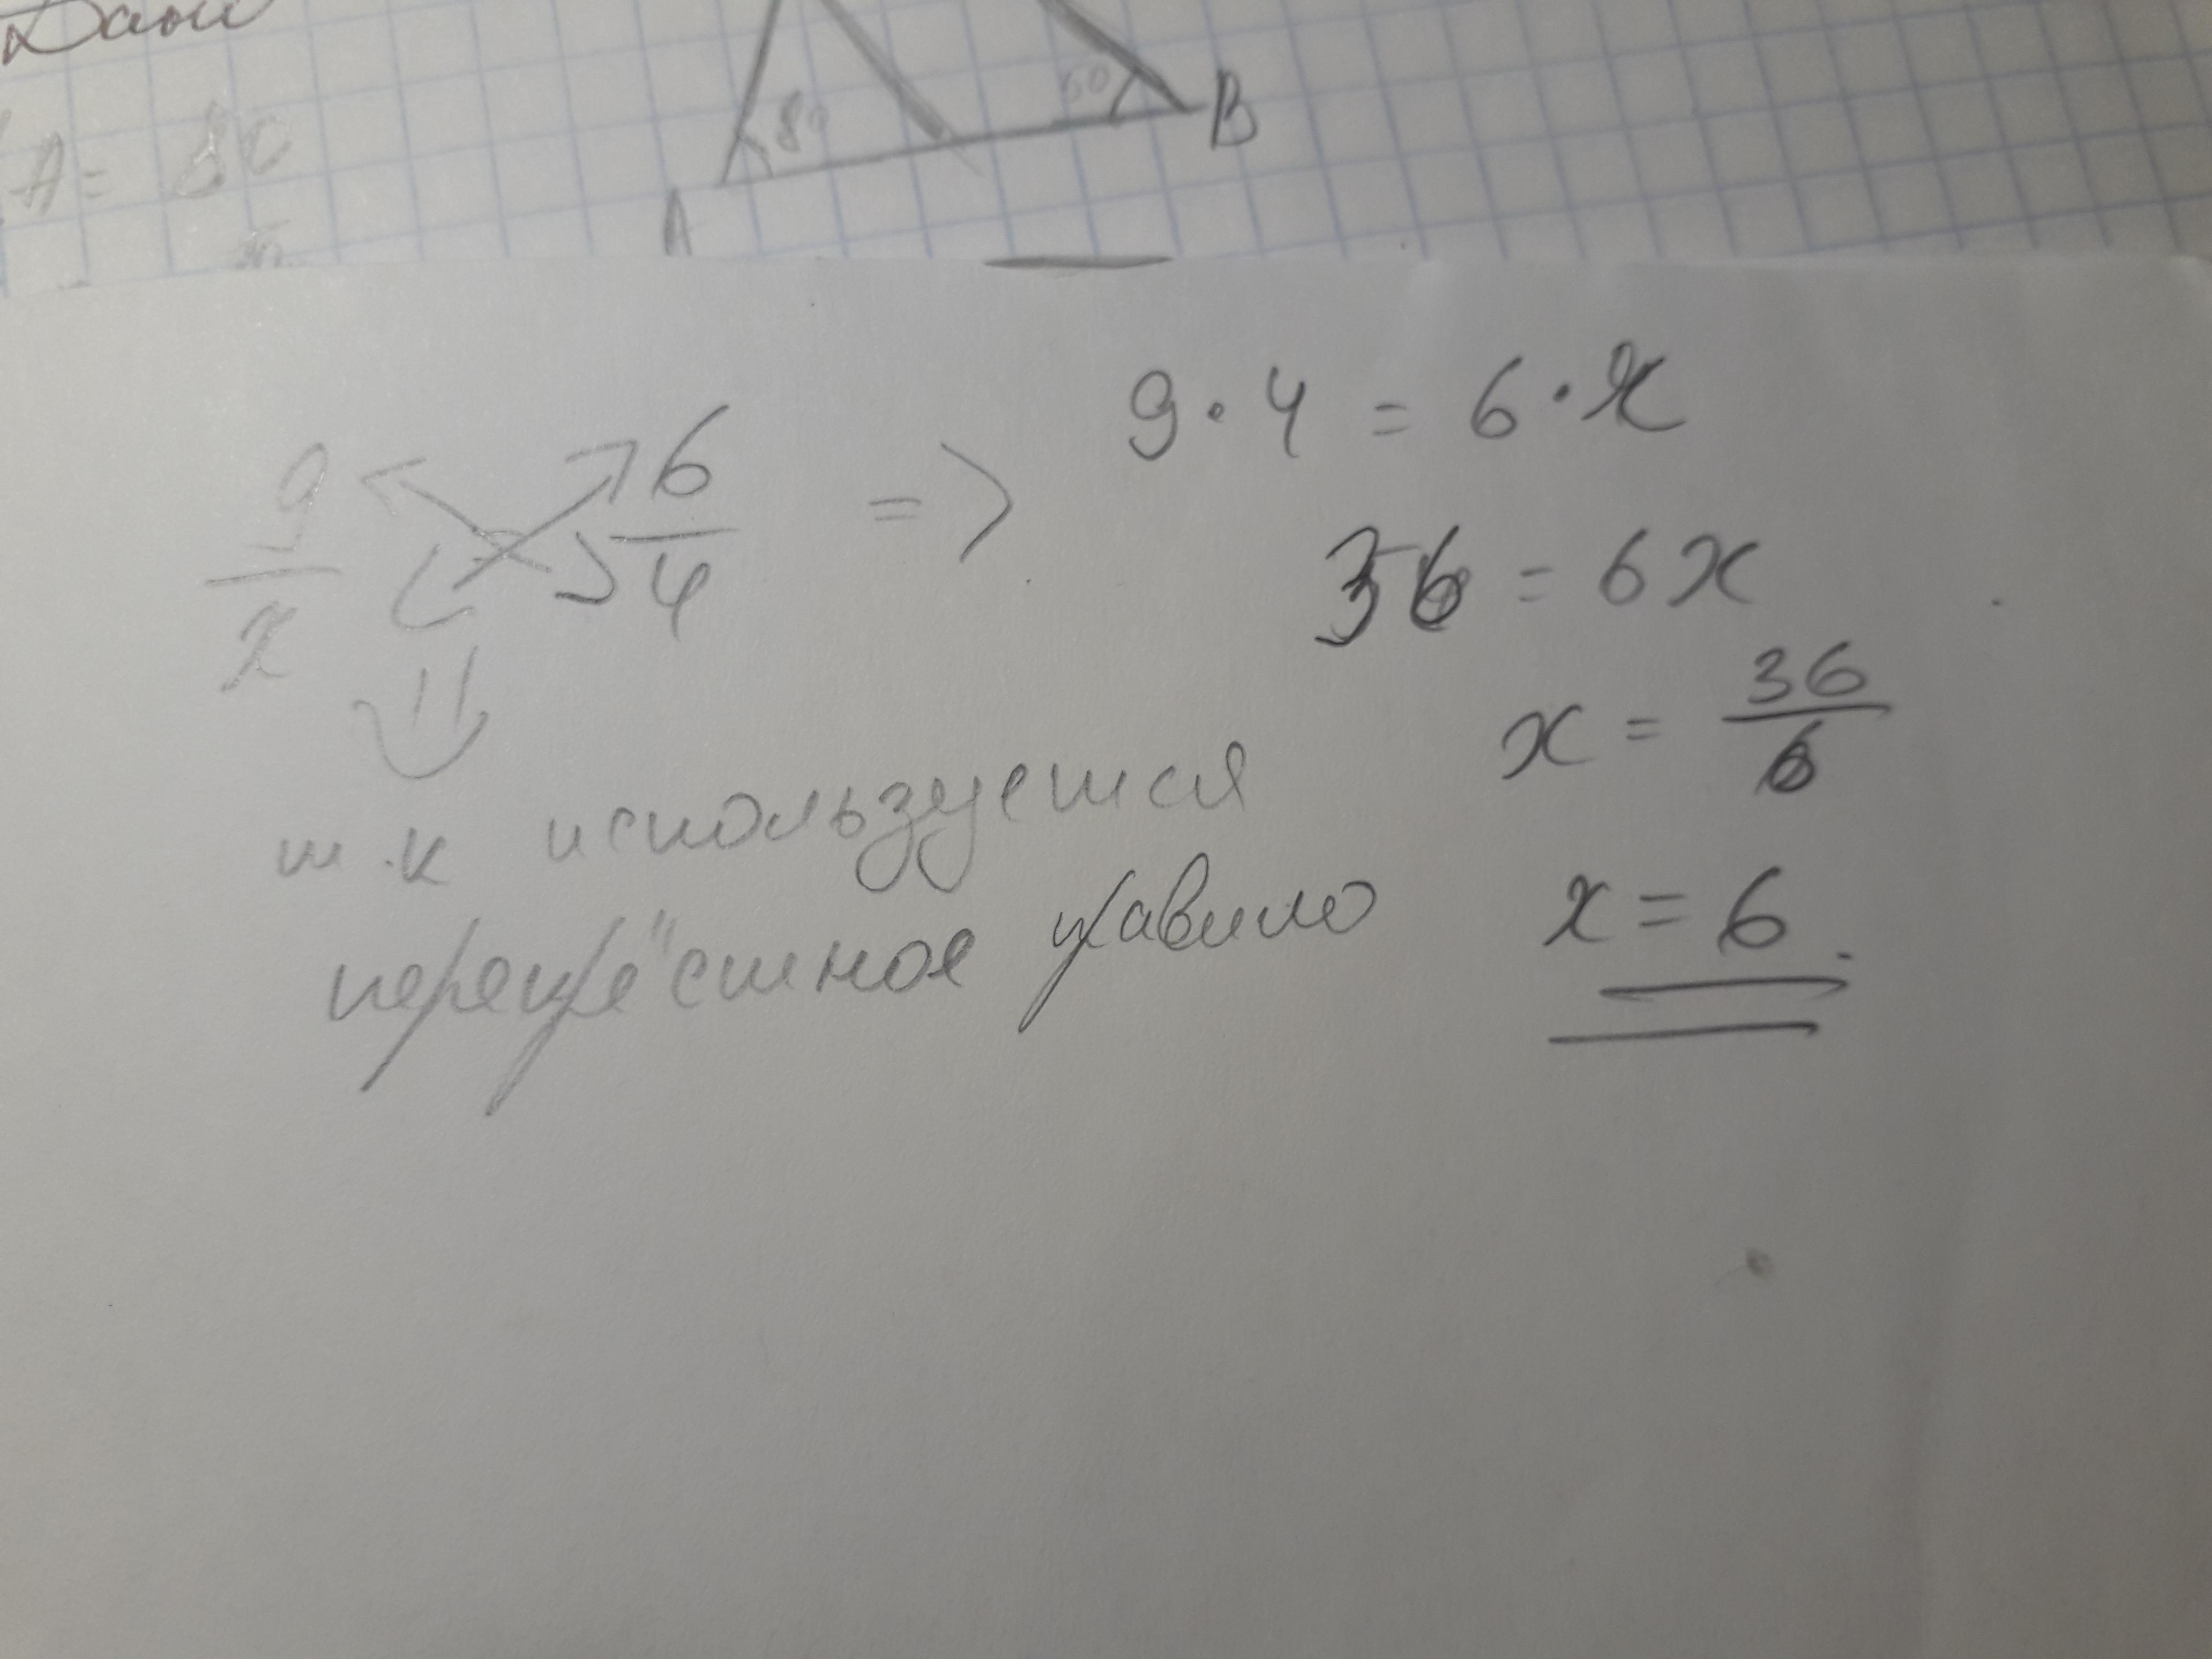 Дано
A = 80
80
60
B
A
9/x 6/4 => 9·4 = 6·x
36 = 6x
x = 36/6
x = 6.
т.к используется
перекрёстное правило